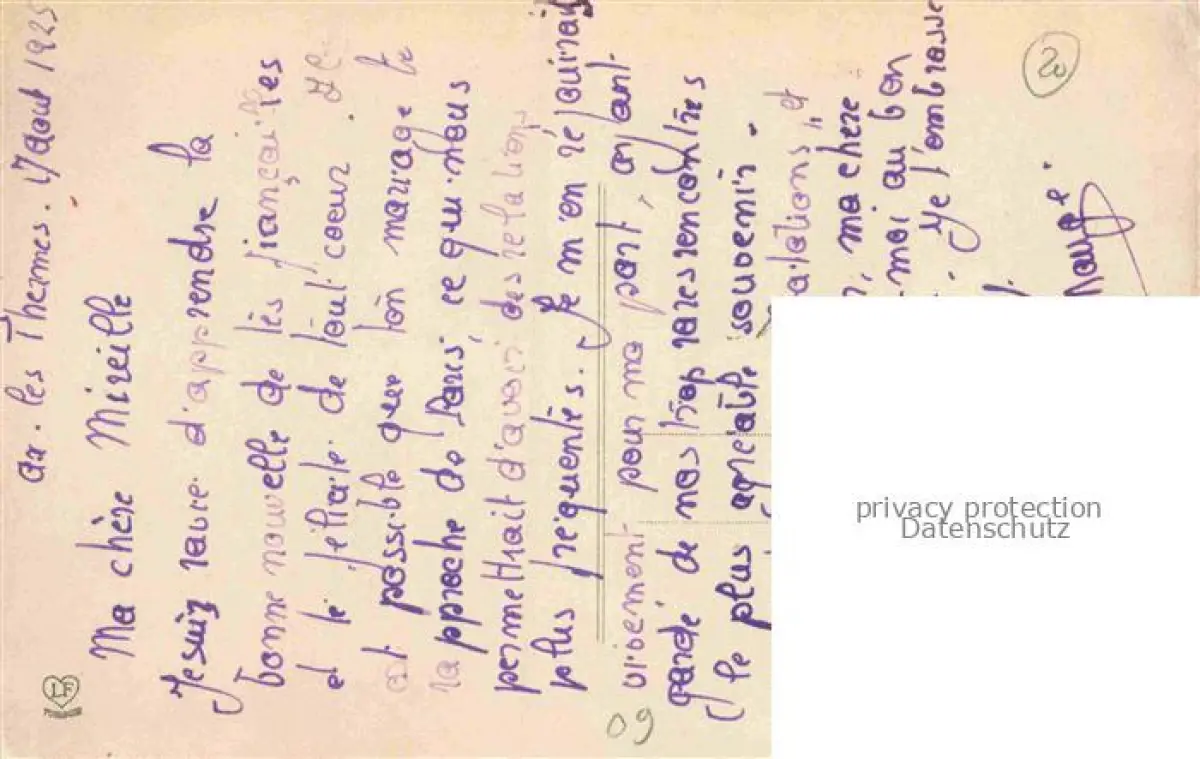 Ax. les Thermes. 17 Aout 1925
Ma chère Mireille
Je suis ravie d'apprendre la
bonne nouvelle de tes fiançailles
et te félicite de tout coeur. Il
est possible que ton mariage te
rapproche de Paris, ce qui nous
permettrait d'avoir des relations
plus fréquentes. Je m'en réjouirais
vivement pour ma part, ayant
gardé de nos trop rares rencontres
le plus agréable souvenir.
et
ma chère
moi au bon
Je t'embrasse
20
09
LF
privacy protection
Datenschutz